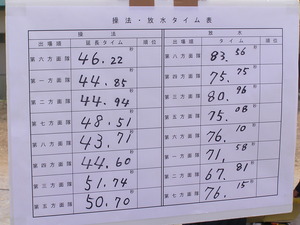 操法・放水タイム表
操法 放水
出場隊 延長タイム 順位 出場隊 タイム 順位
第六方面隊 46.22秒 第八方面隊 83.56秒
第一方面隊 44.85秒 第四方面隊 75.75秒
第二方面隊 44.94秒 第三方面隊 80.96秒
第七方面隊 48.51秒 第五方面隊 75.08秒
第八方面隊 43.71秒 第六方面隊 76.10秒
第四方面隊 44.60秒 第一方面隊 71.58秒
第三方面隊 51.74秒 第二方面隊 67.81秒
第五方面隊 50.70秒 第七方面隊 76.15秒